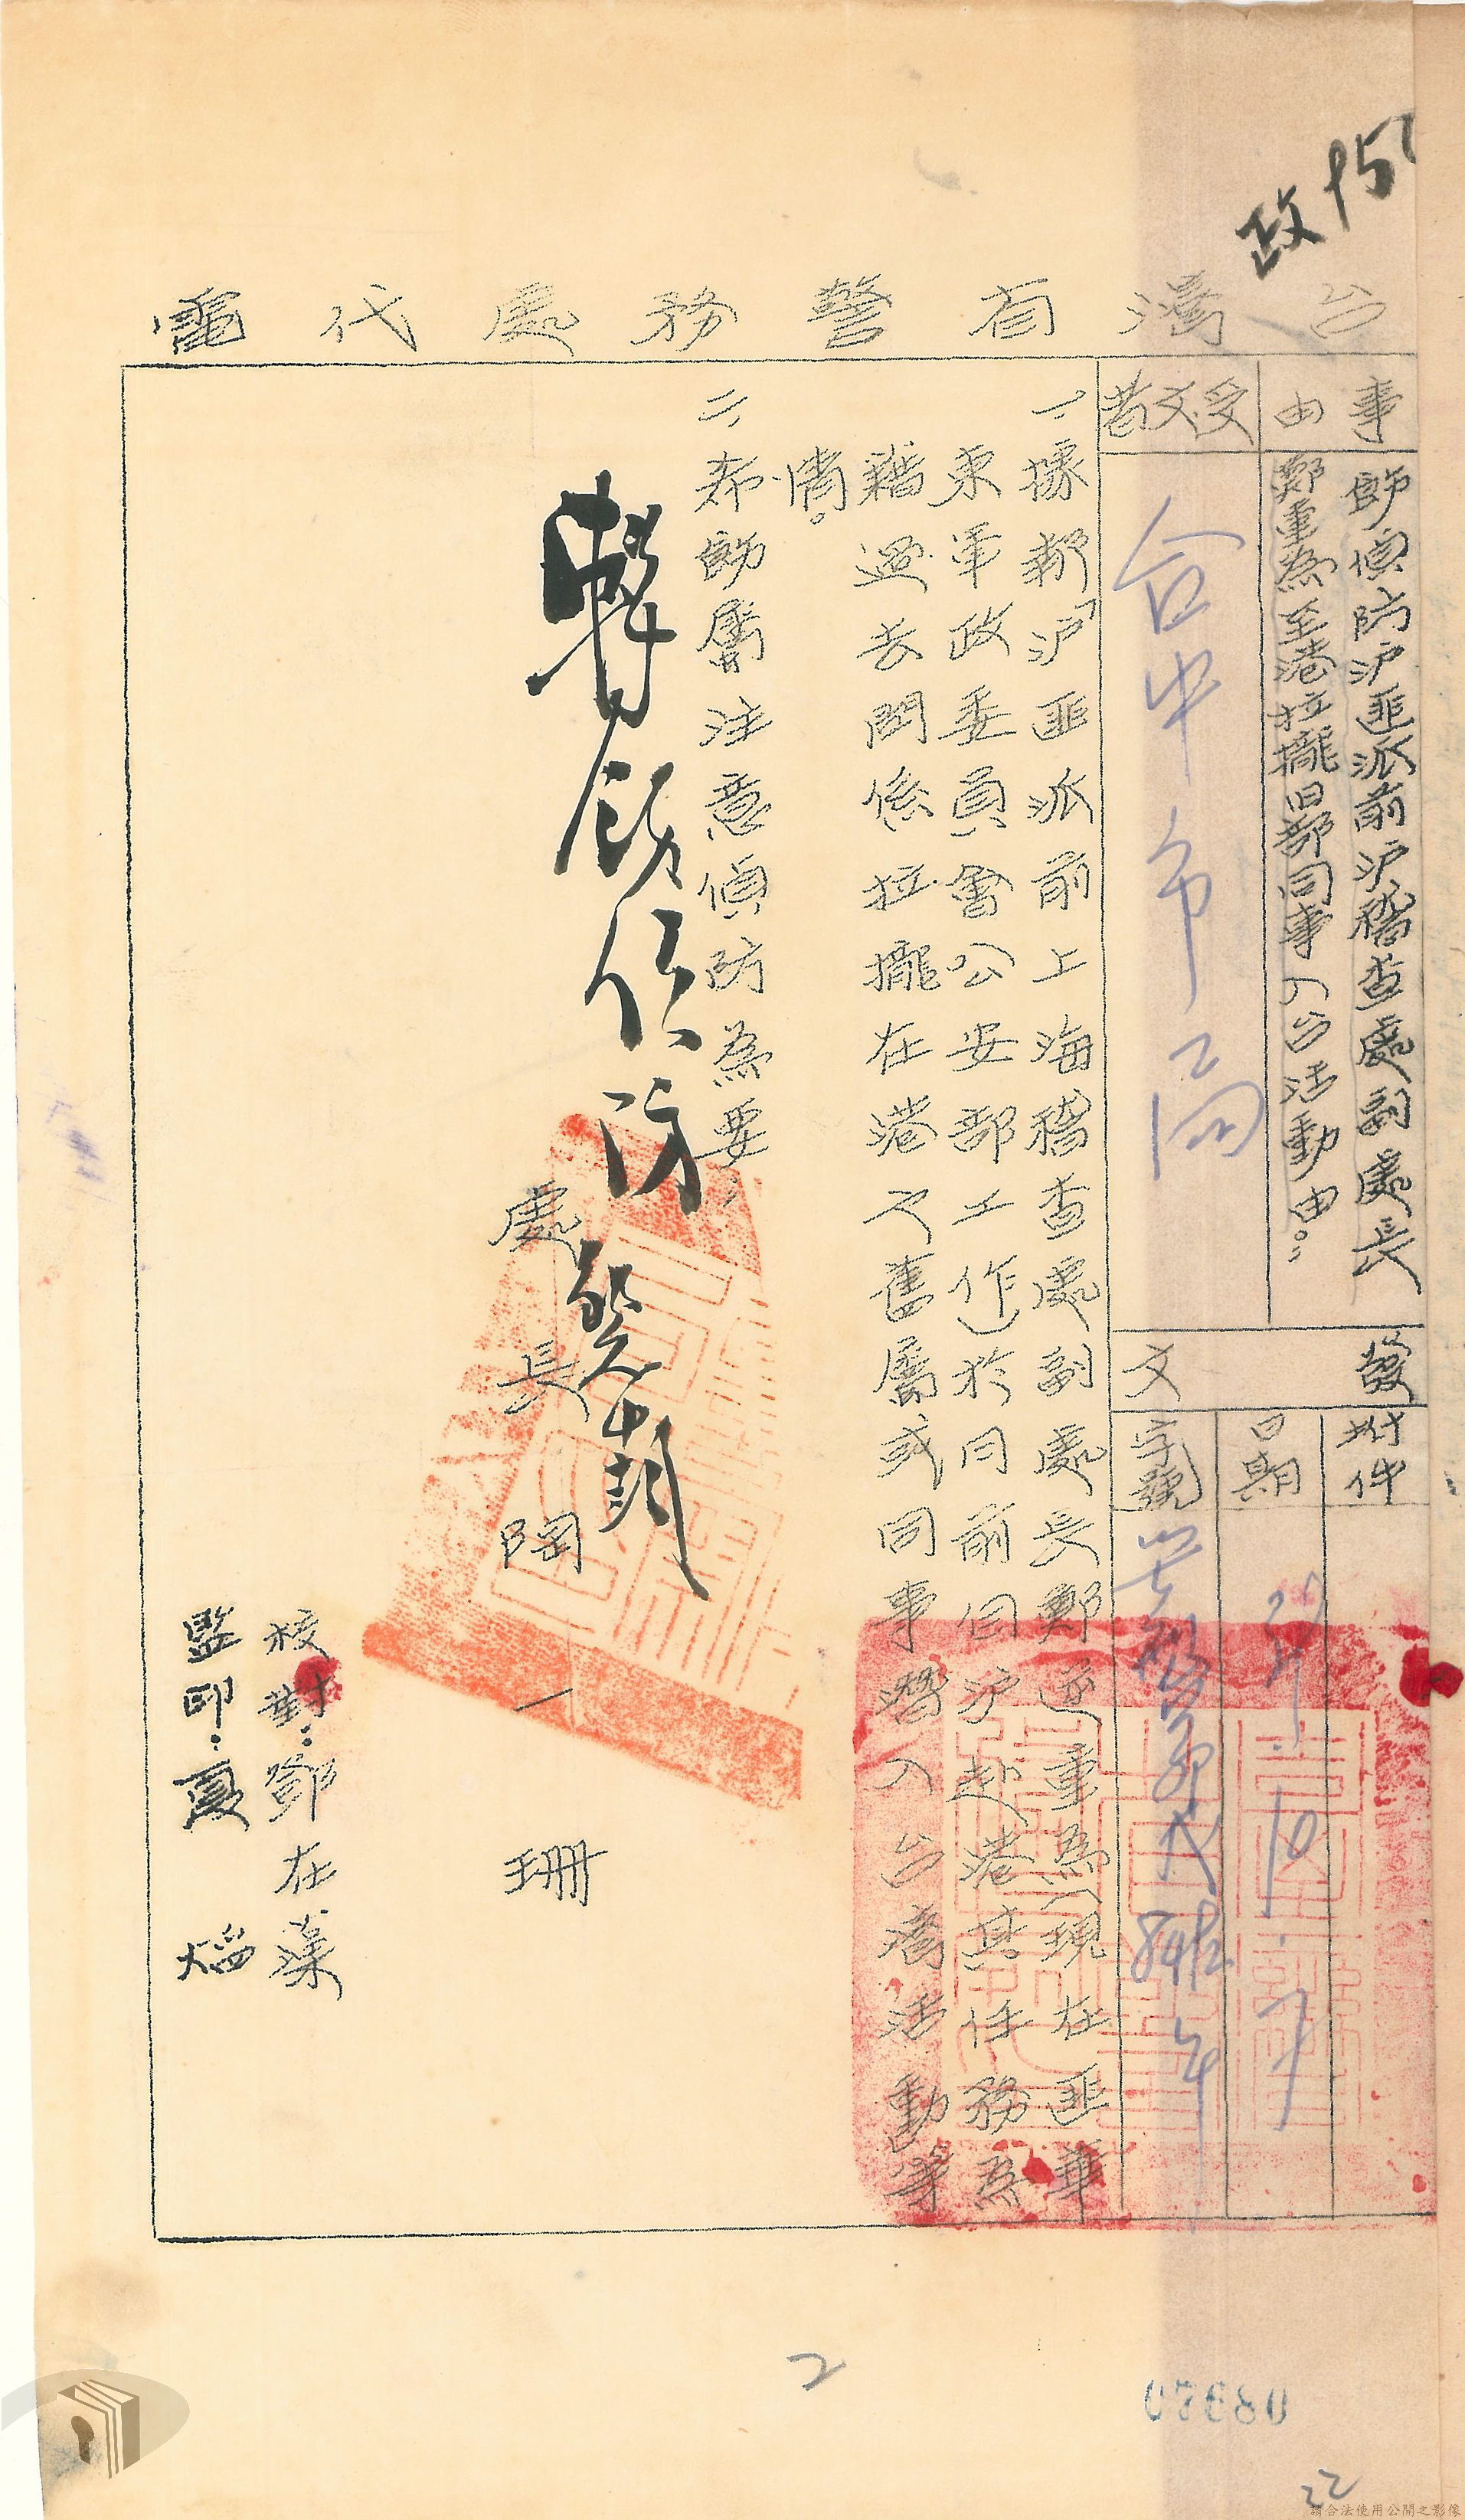 政
台灣省警務處代電
事由
飭偵防沪匪派前沪稽查處副處長
鄭重為至港拉攏旧部同事入台活動由。
受文者
台中市局
發文
附件
日期
39.10.7
字號
一、據報「沪匪派前上海稽查處副處長鄭逆重為(現在匪華
東軍政委員會公安部工作)於同前由沪赴港其任務為
藉過去関係拉攏在港之舊屬或同事潛入台灣活動」等
情。
二、希飭屬注意偵防為要。
處長陶一珊
校對:鄧在藻
監印:夏大
2
07680
22
請合法使用公開之影像